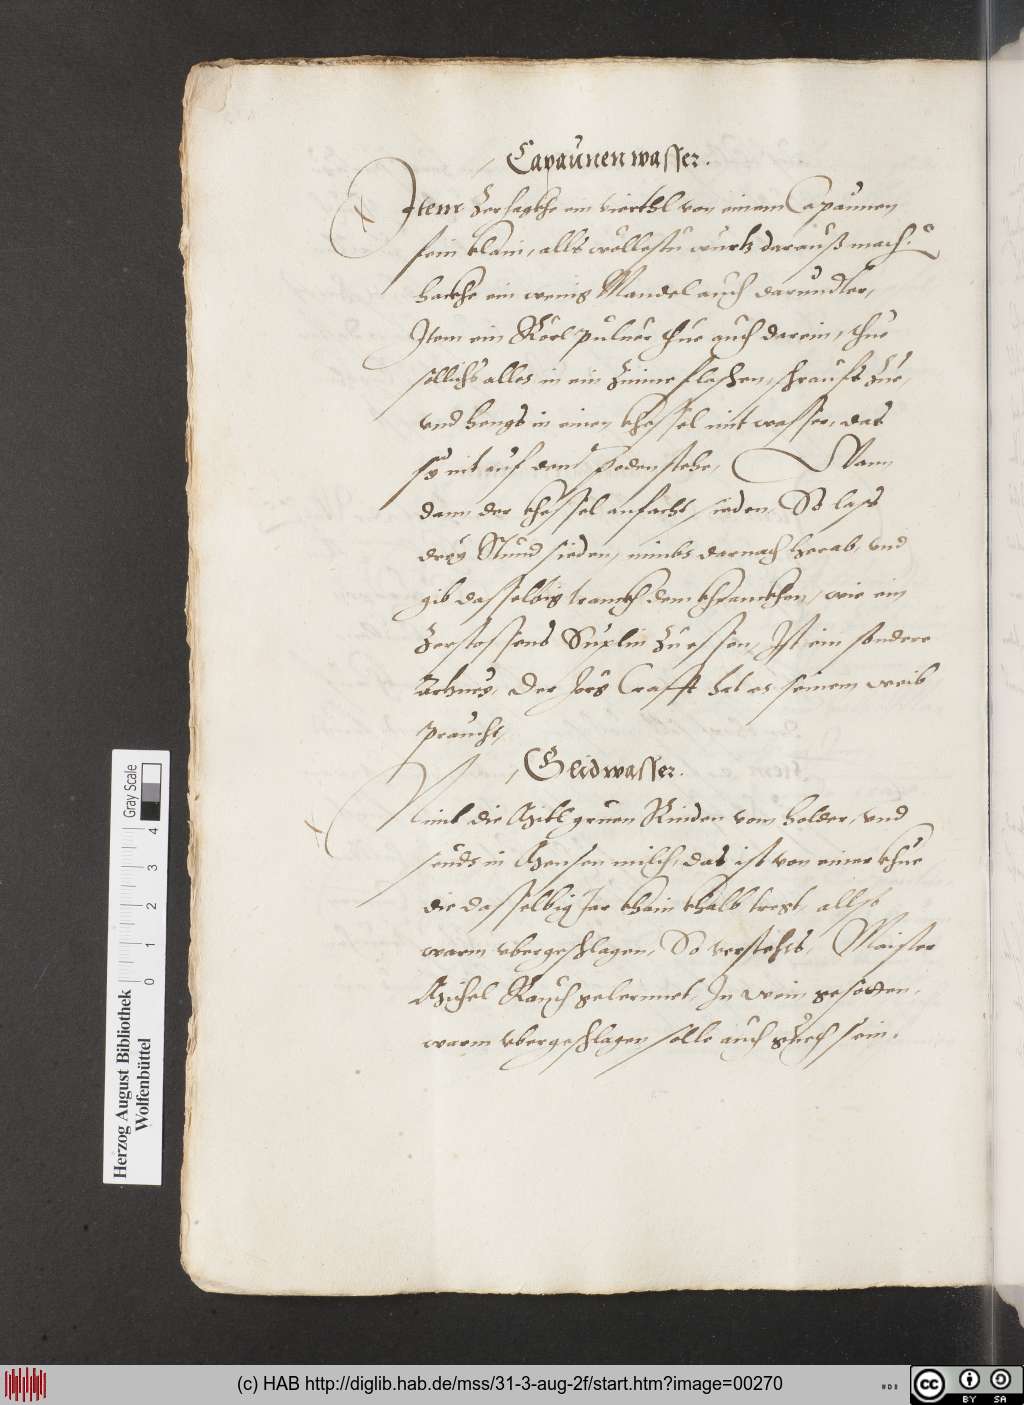 Capaunen wasser.
Item Zerhagkhe ein vierthl von einem Capaunen
fein klain, allß wollestu würst darauß mach:
hackhe ein wenig Mandel auch darundter,
Item ein pulver thue auch darein, thue
sollichs alles in ein Zinine flaschen, schraufs Zue,
vnd hengs in einen khessel mit wasser, das
sÿ nit auf dem poden stehe, Wann
dann der khessel anfacht sieden, So lass
dreÿ Stund sieden, nimbs darnach herab, vnd
gib dasselbig tranckh dem khranckhen, wie ein
Zerstossens Süplin Zu essen, Ist ein sondere
Der Jörg Crafft hat es seinem weib
praucht,
Glidwasser.
Nimb die Mitl gruen Rinden vom holder, vnd
seuds in milch, das ist von einer khue
die dasselbig Jar khain khalb tregt, allso
warm vbergeschlagen, So verstehts, Maister
Michel Rauch gelernnet, In wein gesotten,
warm vbergeschlagen solle auch guet sein.
Herzog August Bibliothek
Wolfenbüttel
0 1 2 3 4
Gray Scale
(c) HAB http://diglib.hab.de/mss/31-3-aug-2f/start.htm?image=00270
cc BY SA